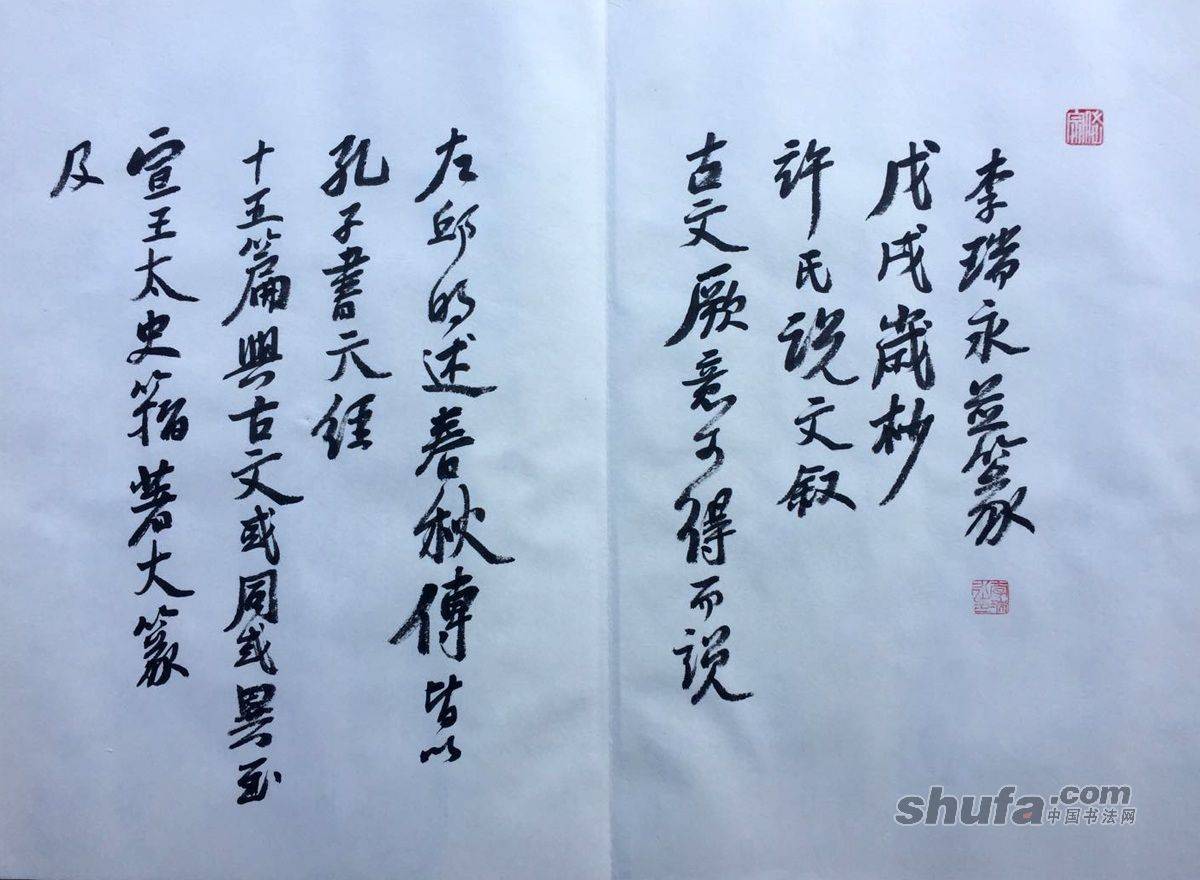 及
宣王太史籀著大篆
十五篇與古文或同或異至
孔子書六經
左邱明述春秋傳皆以
古文厥意可得而説
許氏説文叙
戊戌歲杪
李瑞永並篆
李瑞永印
shufa.com
中国书法网